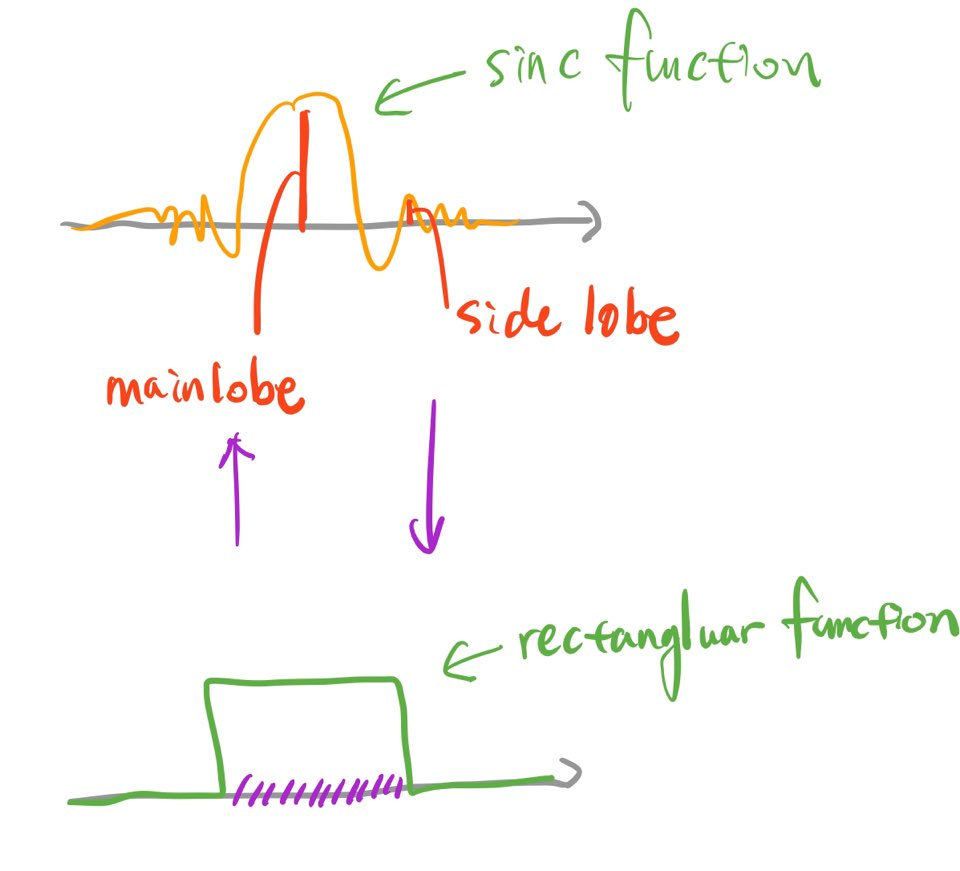 sinc function
side lobe
mainlobe
rectangluar function